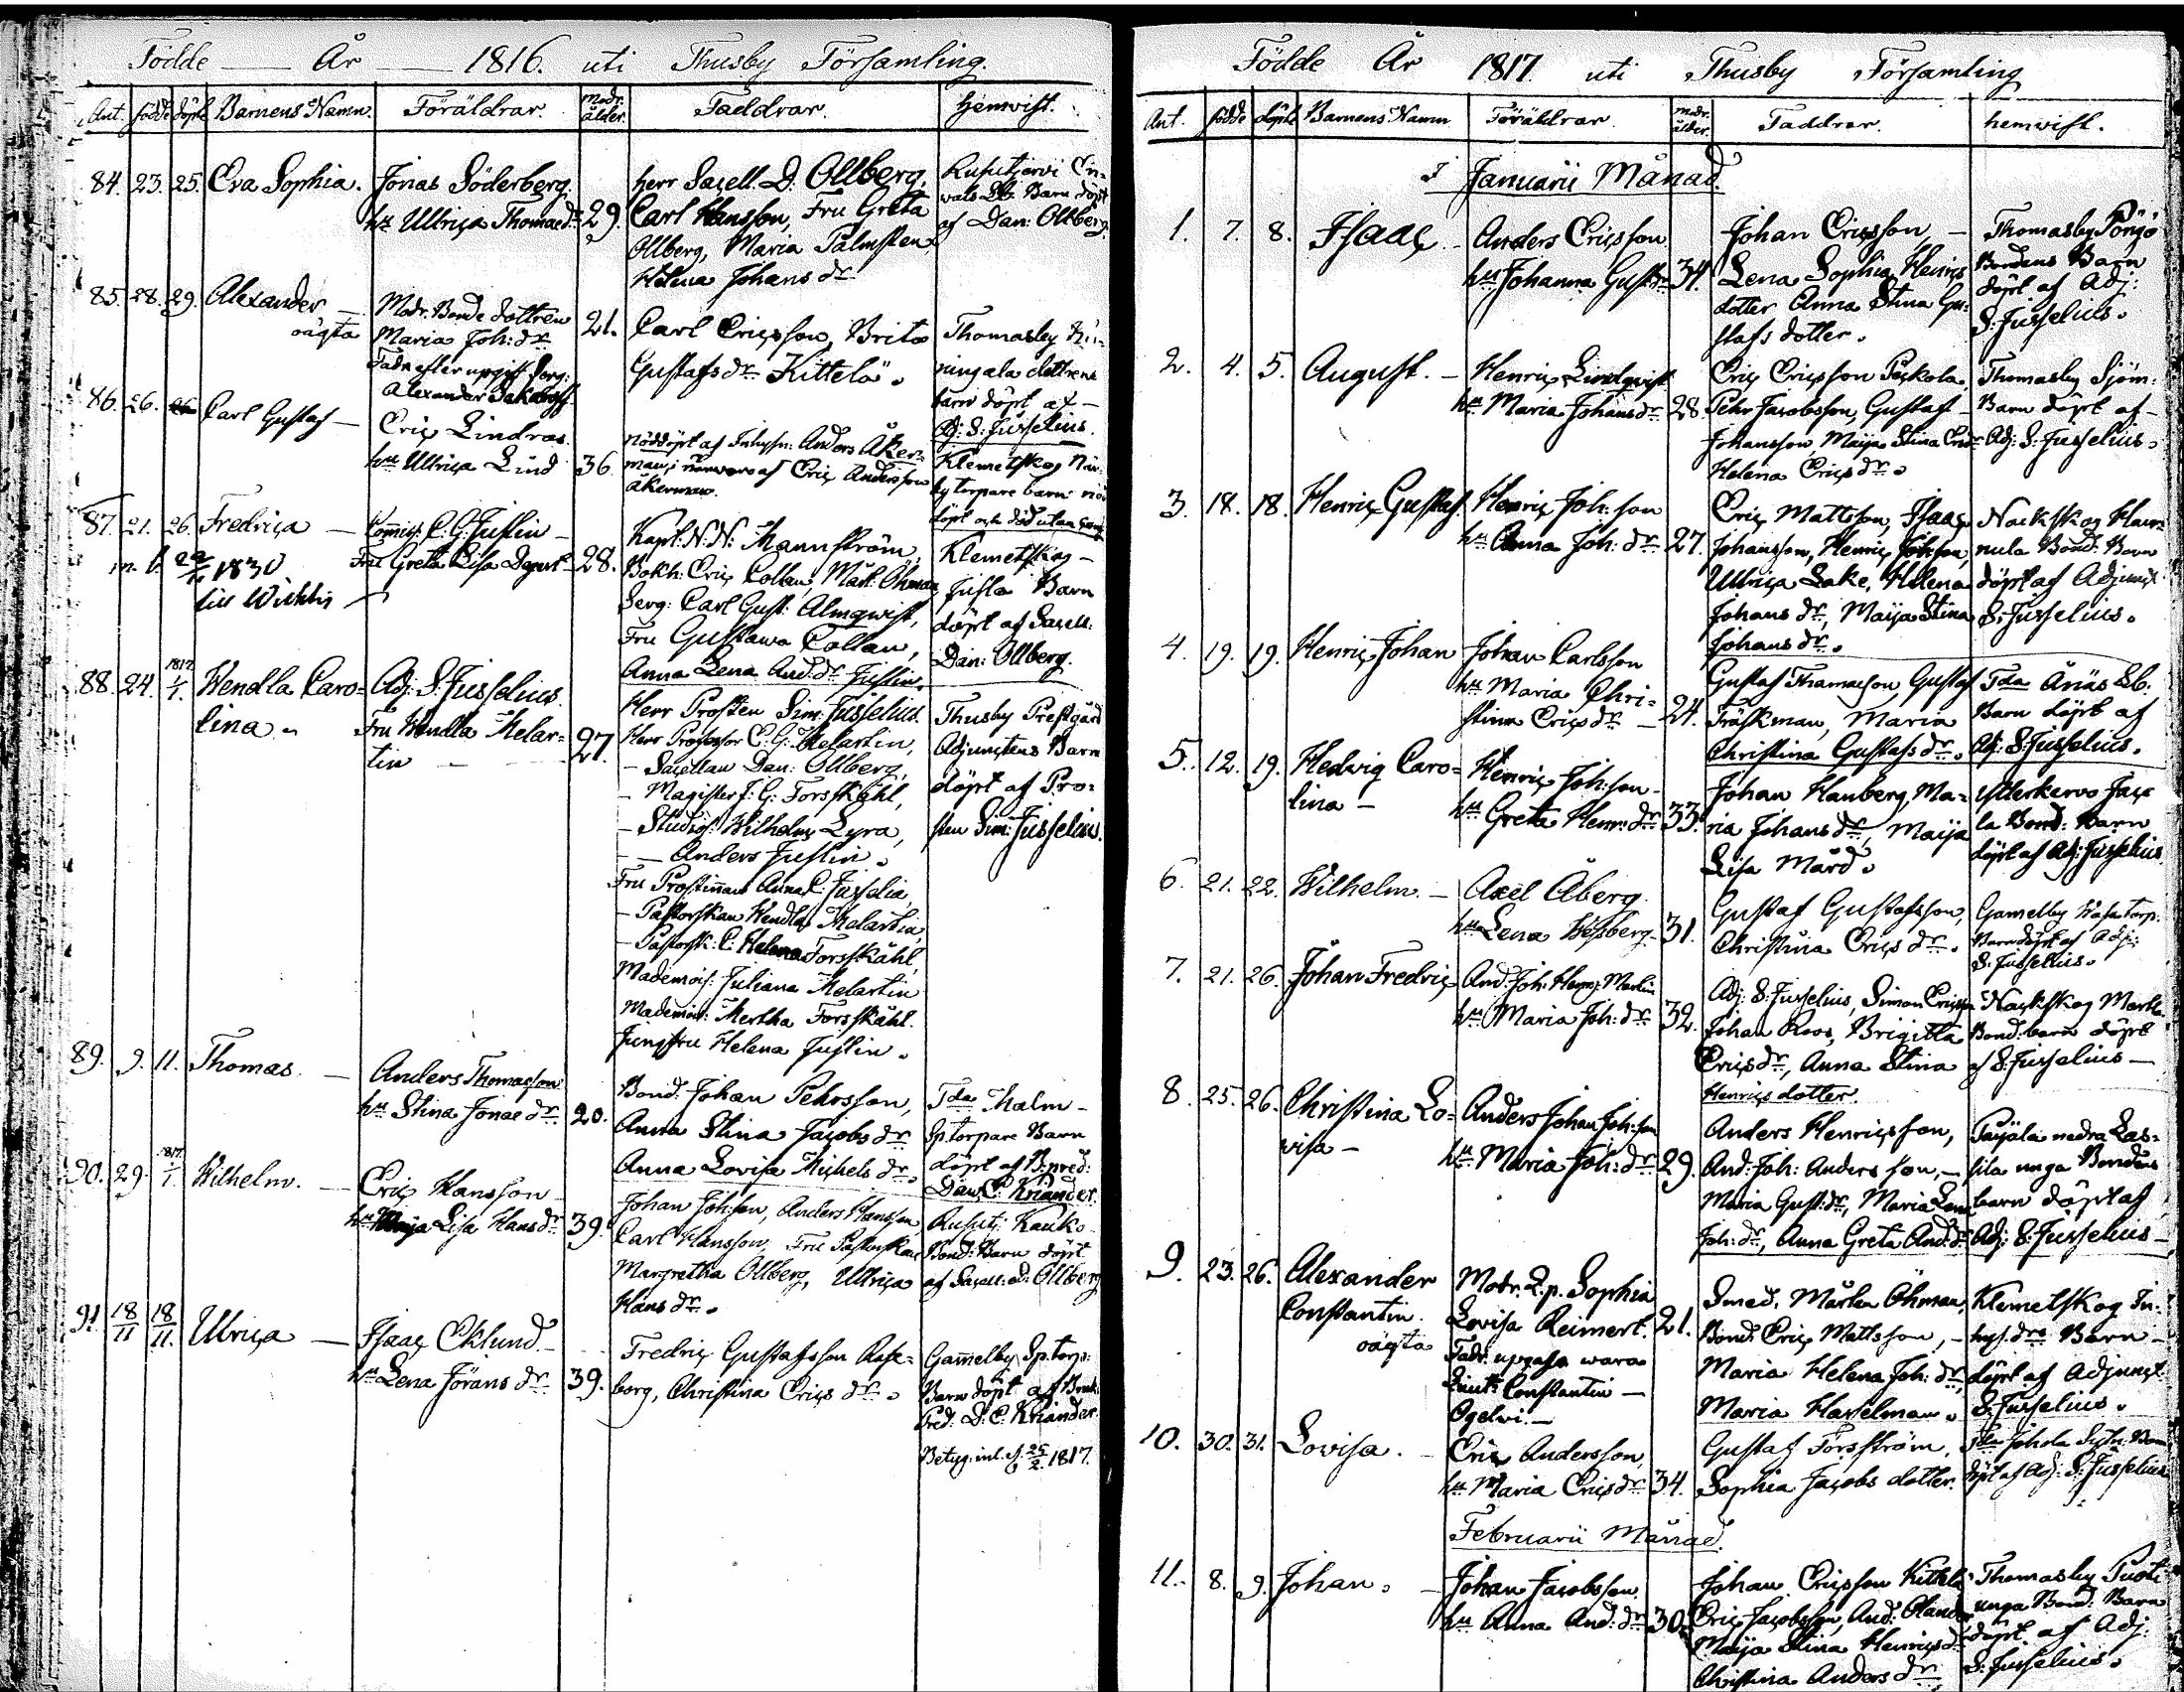 Födde År 1816. uti Thusby Församling.
Ant. födde döpte Barnens Namn. Föräldrar. Modr. ålder. Faddrar. hemvist.
84. 23. 25. Eva Sophia. Jonas Söderberg.
hu Ulrica Thomaedr 29.
herr Sacell. D. Ollberg,
Carl Hansson, Fru Greta
Ollberg, Maria Palmsten,
Helena Johans dr
Barn döpt
af Dan: Ollberg.
85. 28. 29. Alexander
oägta
Modr. Bonde dottren
Maria Joh: dr 21.
Fadr efter upgift Serg:
Alexander
Carl Ericsson, Brita
Gustafs dr Kittelä.
Thomasby
dottrens
barn döpt af
Adj: S: Jusselius.
86. 26. Carl Gustaf
Eric Lindros
hu Ulrica Lind 36.
nöddöpt af Anders Åker-
man, i närwaro af Eric Andersson
Åkerman.
Klemetskog
torpare barn
87. 21. 26. Fredrica
1830
till Wichtis
C. G. Justin
Fru Greta Lisa 28.
Kapl. N. N. Mannström,
Bokh: Eric Collan, Mårt: Öhman
Serg: Carl Gust: Almqwist,
Fru Gustawa Collan,
Anna Lena And: dr Justin.
Klemetskog
Jusla Barn
döpt af Sacell:
Dan: Ollberg.
88. 24. 1817 1/1. Wendla Caro-
lina.
Adj: S: Jusselius.
Fru Wendla Melar-
tin 27.
Herr Prosten Sim: Jusselius.
Herr Professor E: G: Melartin,
- Sacellan Dan: Ollberg,
- Magister J: G: Forsskåhl,
- Studios: Wilhelm Lyra,
- Anders Justin.
Fru Prostinnan Anna C: Jusselia,
- Pastorskan Wendla Melartin,
- Pastorsk: C: Helena Forsskåhl,
Mademois: Juliana Melartin
Mademois: Mertha Forsskåhl.
Jungfru Helena Justin.
Thusby Prestgård
Adjunctens Barn
döpt af Pro-
sten Sim: Jusselius.
89. 9. 11. Thomas.
Anders Thomasson
hu Stina Jonae dr 20.
Bond. Johan Pehrsson,
Anna Stina Jacobs dr
Anna Lovisa Michels dr.
Tda Malm
Sp.torpare Barn
döpt af B:pred:
Dan. C. Kriander.
90. 29. 1817 1/1. Wilhelm.
Eric Hansson
hu Maija Lisa Hans dr 39.
Johan Joh:son, Anders Hansson,
Carl Hansson, Fru Pastorskan
Margretha Ollberg, Ulrica
Hans dr.
Rusutj: Kauko
Bond: Barn döpt
af Sacell: D: Ollberg
91. 18/11 18/11. Ulrica
Isaac Eklund.
hu Lena Jörans dr 39.
Fredric Gustafsson Rase-
borg, Christina Erics dr.
Gammelby Sp.torp:
Barn döpt af
Pred: D: C. Kriander.
Betyg. inl. d. 25/2. 1817.
Födde År 1817. uti Thusby Församling
Ant. födde döpte Barnens Namn Föräldrar. Modr. ålder. Faddrar. hemvist.
Januarii Månad.
1. 7. 8. Isaac.
Anders Ericsson
hu Johanna Gust:dr 34.
Johan Ericsson,
Lena Sophia Henrics
dotter Anna Stina Gu-
stafs dotter.
Thomasby
Bondens Barn
döpt af Adj:
S: Jusselius.
2. 4. 5. August.
Henric Lindqvist
hu Maria Johans dr 28.
Eric Ericsson Päckola,
Pehr Jacobsson, Gustaf
Johansson, Maija Stina
Helena Erics dr.
Thomasby
Barn döpt af
Adj: S: Jusselius.
3. 18. 18. Henric Gustaf.
Henric Joh:son
hu Anna Joh: dr 27.
Eric Mattsson, Isaac
Johansson, Henric Johsson,
Ulrica Lake, Helena
Johans dr, Maija Stina
Johans dr.
Nackskog
Bond: Barn
döpt af Adjunct
S: Jusselius.
4. 19. 19. Henric Johan
Johan Carlsson
hu Maria Chri-
stina Erics dr 24.
Gustaf Thomasson, Gustaf
Träskman, Maria
Christina Gustafs dr.
Tda Änäs
Barn döpt af
Adj: S: Jusselius.
5. 12. 19. Hedwig Caro-
lina
Henric Joh:son
hu Greta Henr: dr 33.
Johan Hanberg, Ma-
ria Johans dr, Maija
Lisa Mård.
Ytterkervo
Bond: Barn
döpt af Adj: Jusselius
6. 21. 22. Wilhelm.
Axel Åberg.
hu Lena Wessberg 31.
Gustaf Gustafsson,
Christina Erics dr.
Gamelby
Barn döpt af Adj:
S. Jusselius.
7. 21. 26. Johan Fredric
And. Joh:
hu Maria Joh: dr 32.
Adj: S: Jusselius, Simon Ericsson
Johan Roos, Brigitta
Erics dr, Anna Stina
Henrics dotter.
Nackskog
Bond: barn döpt
af S: Jusselius
8. 25. 26. Christina Lo-
visa
Anders Johan Joh:son
hu Maria Joh: dr 29.
Anders Henricsson,
And: Joh: Andersson,
Maria Gust: dr, Maria Lena
Joh: dr, Anna Greta And: dr
Paijala nedra Las-
sila unga Bondens
barn döpt af
Adj: S: Jusselius
9. 23. 26. Alexander
Constantin.
oägta
Modr. Sophia
Lovisa Reimert. 21.
Fadr. upgifva wara
Constantin
Ogelvi.
Smed. Mårten Öhman,
Bond. Eric Mattsson,
Maria Helena Joh: dr,
Maria Hasselman.
Klemetskog In-
hys. drs Barn
döpt af Adjunct:
S: Jusselius.
10. 30. 31. Lovisa.
Eric Andersson,
hu Maria Erics dr 34.
Gustaf Forsström,
Sophia Jacobs dotter.
döpt af Adj: S: Jusselius
Februarii Månad.
11. 8. 9. Johan.
Johan Jacobsson
hu Anna And: dr 30.
Johan Ericsson Kittelä
Eric Jacobsson, And:
Maija Stina Henrics dr
Christina Anders dr
Thomasby
unga Bond: Barn
döpt af Adj:
S: Jusselius.